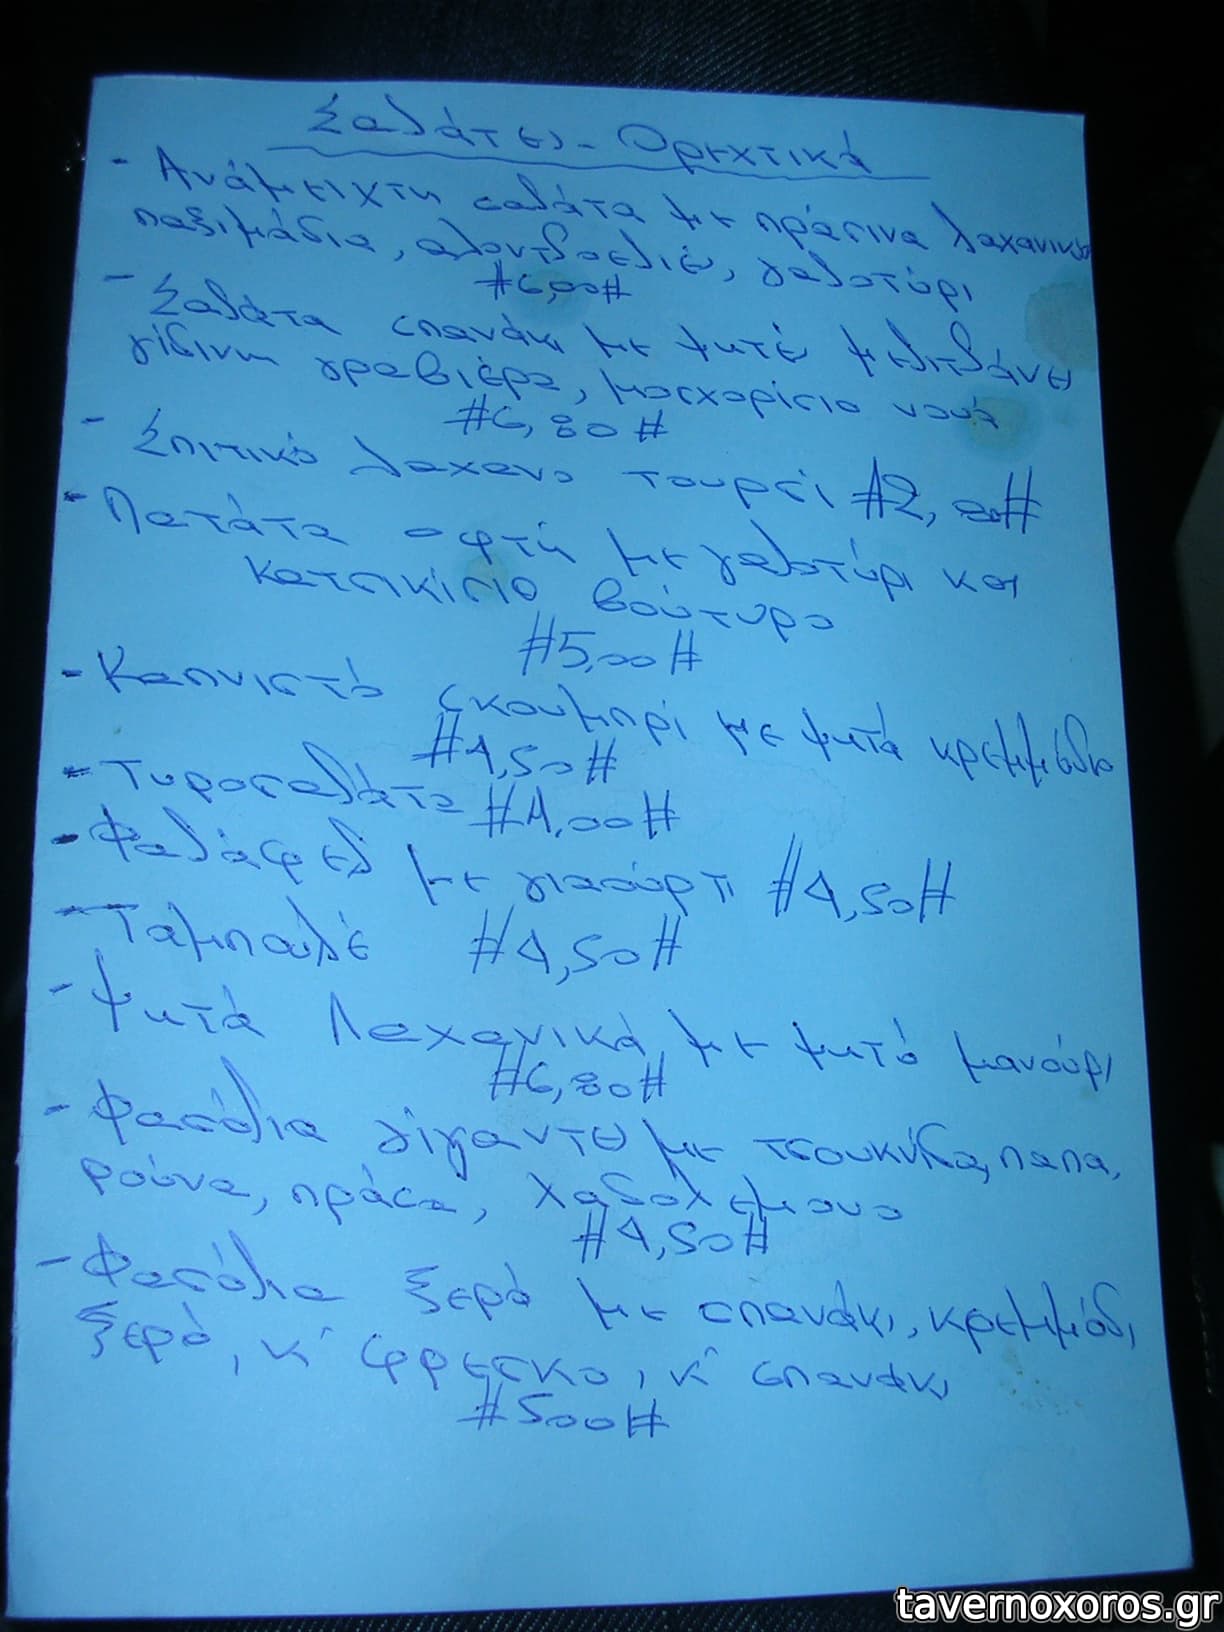 Σαλάτες - Ορεχτικά
- Ανάμειχτη σαλάτα με πράσινα λαχανικά
παξιμάδια, γαλοτύρι
#6,00#
- Σαλάτα σπανάκι με ψητές μελιτζάνες
γίδινη γραβιέρα, μοσχορίσιο νουά
#6,80#
- Σπιτικό λαχανο τουρσί #2,80#
- Πατάτα οφτή με γαλοτύρι και
κατσικίσιο βούτυρο
#5,00#
- Καπνιστό σκουμπρί με ψητά κρεμμύδια
#4,50#
- Τυροσαλάτα #4,00#
- Φαλάφελ με γιαούρτι #4,50#
- Ταμπουλέ #4,50#
- Ψητά λαχανικά με ψητό μανούρι
#6,80#
- Φασόλια γίγαντες με τσουκνίδα, παπα,
ρούνα, πράσα,
#4,50#
- Φασόλια ξερά με σπανάκι, κρεμμύδι,
ξερό, κ' φρέσκο, κ' σπανάκι
#500#
tavernoxoros.gr